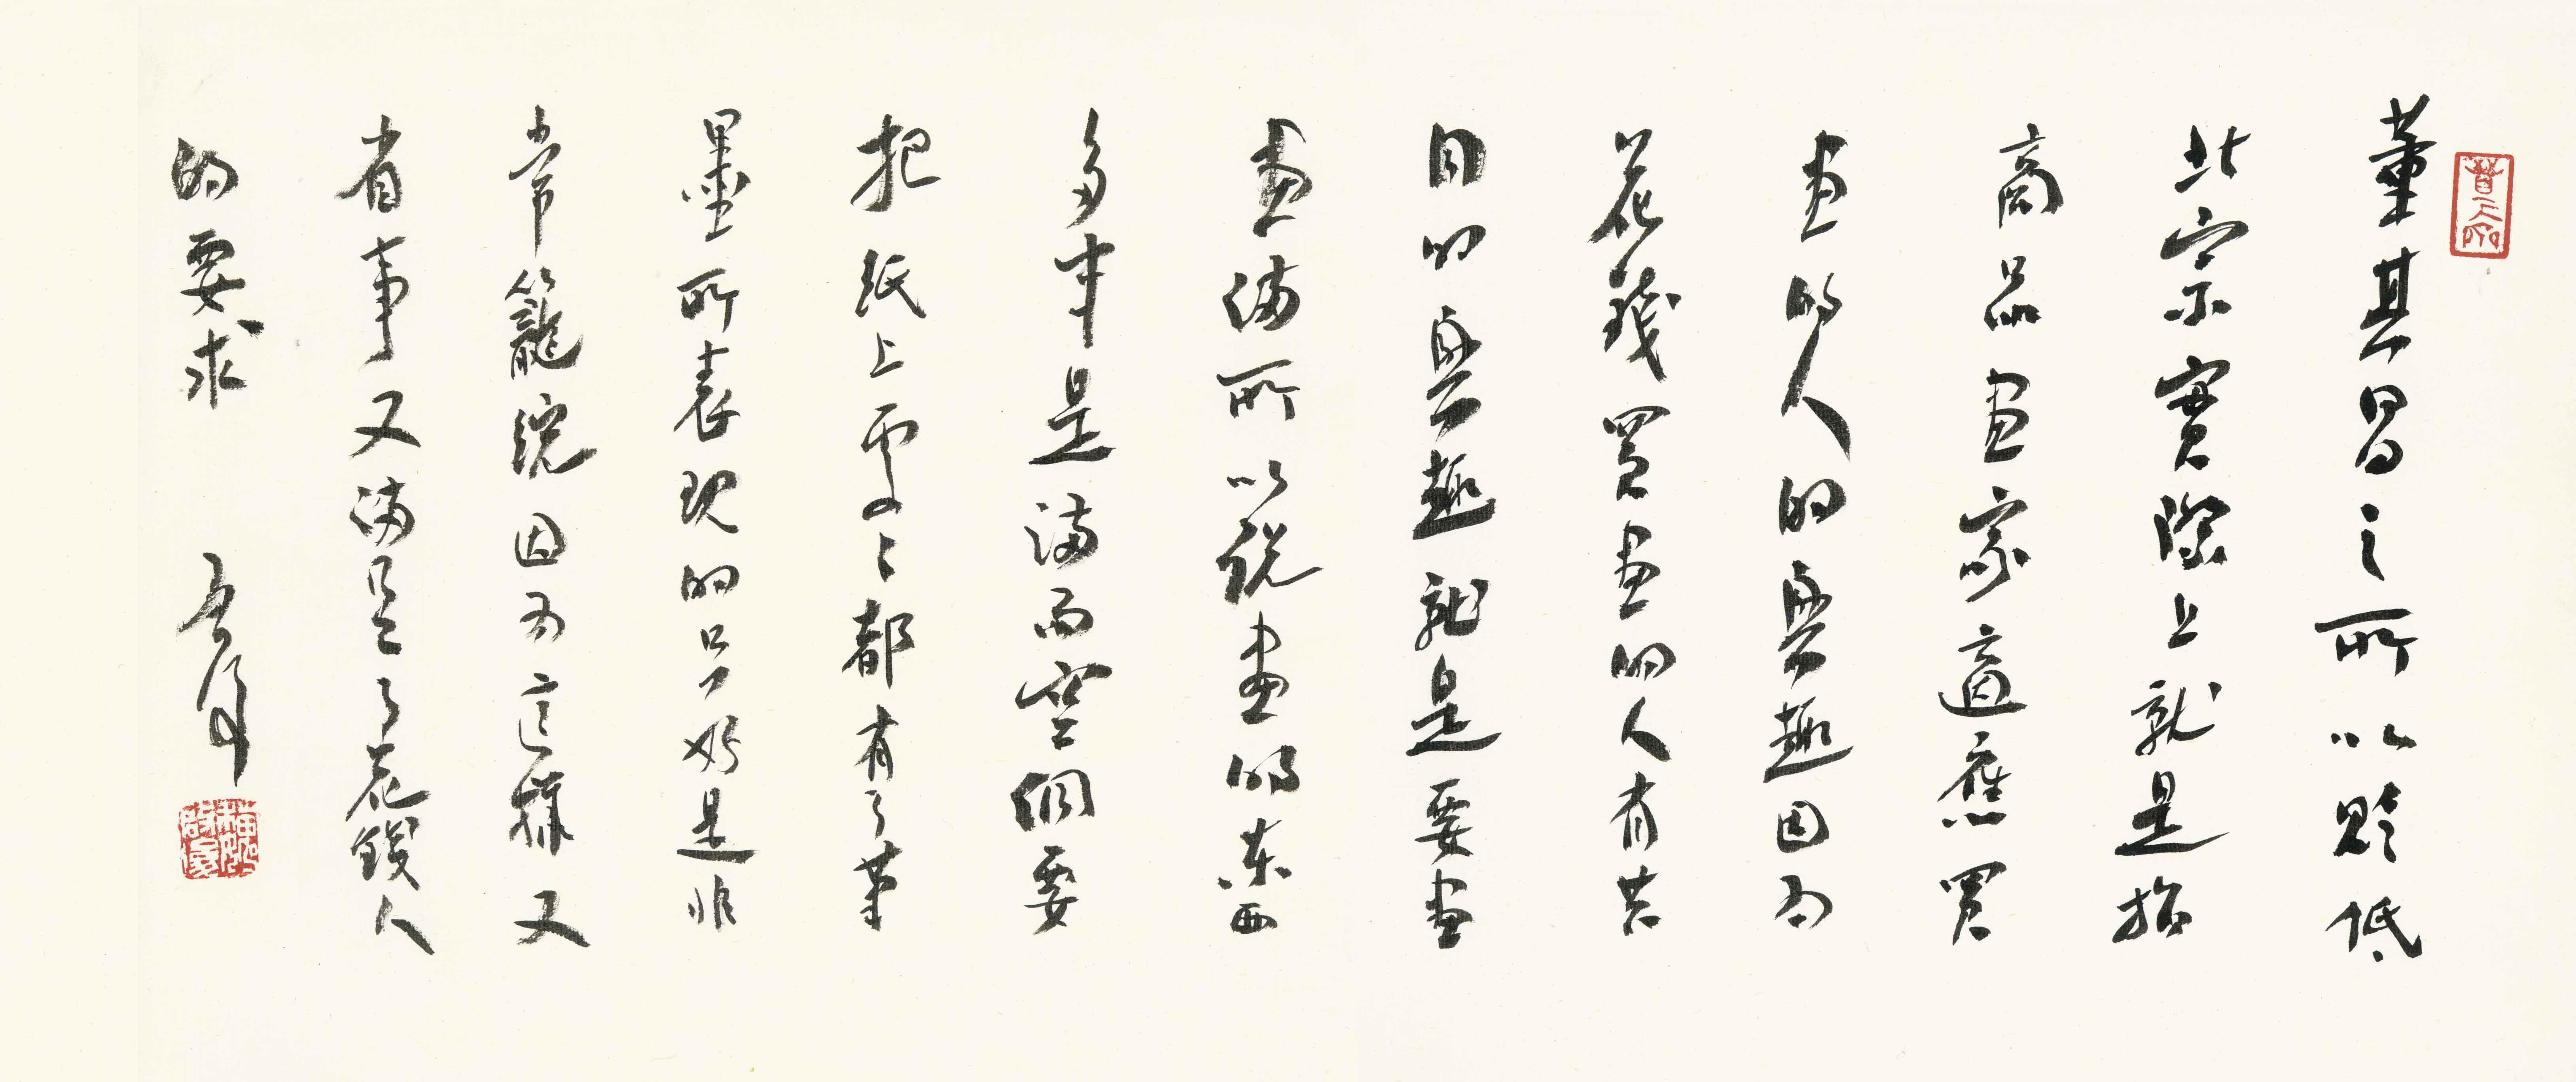 董其昌之所以貶低
北宗實際上就是指
商品畫家適應買
畫的人的興趣因為
花錢買畫的人有共
同的興趣就是要畫
畫滿所以說畫的東西
多本是滿而空但要
把紙上處處都有了筆
墨所表現的只好是非
常籠統因為這樣又
省事又滿足了花錢人
的要求